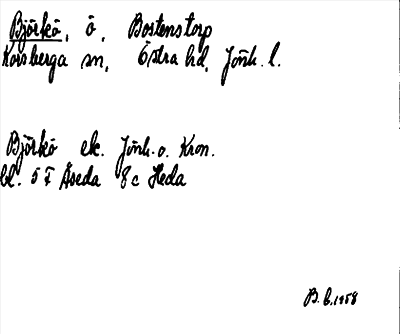 Björkö, ö, Bostenstorp
Korsberga sn, Östra hd, Jönk. l.
Björkö ek. Jönk. o. Kron.
bl. 5 F Åseda 8 c Heda
B. b. 1958